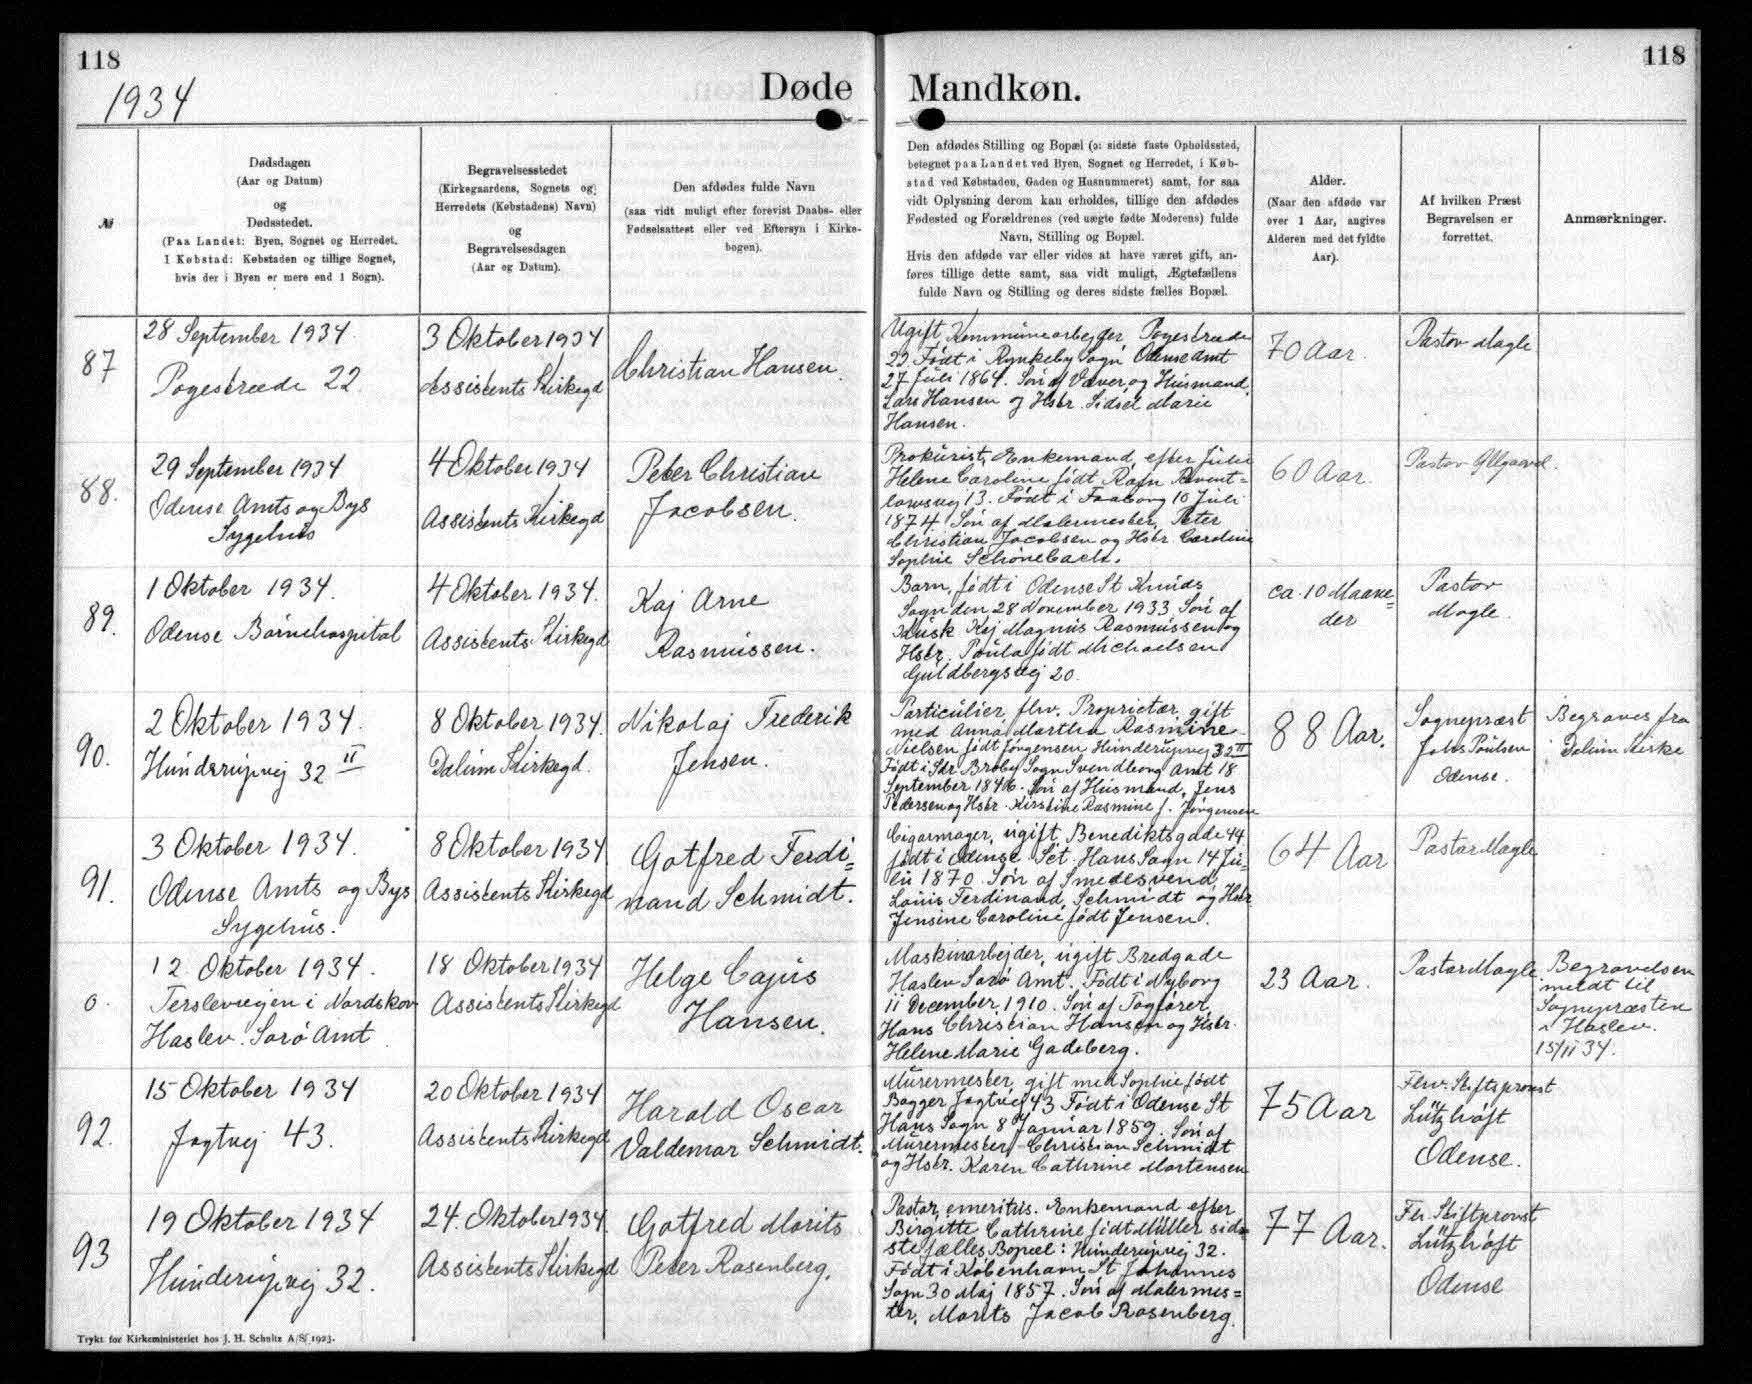 118
118
1934
Døde
Mandkøn.
№
Dødsdagen
(Aar og Datum)
og
Dødsstedet.
(Paa Landet: Byen, Sognet og Herredet.
I Købstad: Købstaden og tillige Sognet,
hvis der i Byen er mere end 1 Sogn).
Begravelsesstedet
(Kirkegaardens, Sognets og
Herredets (Købstadens) Navn)
og
Begravelsesdagen
(Aar og Datum).
Den afdødes fulde Navn
(saa vidt muligt efter forevist Daabs- eller
Fødselsattest eller ved Eftersyn i Kirke-
bogen).
Den afdødes Stilling og Bopæl (ɔ: sidste faste Opholdssted,
betegnet paa Landet ved Byen, Sognet og Herredet, i Køb-
stad ved Købstaden, Gaden og Husnummeret) samt, for saa
vidt Oplysning derom kan erholdes, tillige den afdødes
Fødested og Forældrenes (ved uægte fødte Moderens) fulde
Navn, Stilling og Bopæl.
Hvis den afdøde var eller vides at have været gift, an-
føres tillige dette samt, saa vidt muligt, Ægtefællens
fulde Navn og Stilling og deres sidste fælles Bopæl.
Alder.
(Naar den afdøde var
over 1 Aar, angives
Alderen med det fyldte
Aar).
Af hvilken Præst
Begravelsen er
forrettet.
Anmærkninger.
87
28 September 1934
Pogestræde 22
3 Oktober 1934
Assistents Kirkegd
Christian Hansen.
Ugift, Kommunearbejder, Pogestræde
22. Født i Rynkeby Sogn Odense Amt
27 Juli 1864. Søn af Væver og Husmand
Lars Hansen og Hstr. Sidsel Marie
Hansen.
70 Aar.
Pastor Magle
88.
29 September 1934
Odense Amts og Bys
Sygehus
4 Oktober 1934
Assistents Kirkegd
Peter Christian
Jacobsen.
Prokurist, Enkemand efter Julie
Helene Caroline født Ravn Revent-
lowsvej 13. Født i Faaborg 10 Juli
1874. Søn af Malermester Peter
Christian Jacobsen og Hstr Caroline
Sophie
60 Aar.
Pastor
89.
1 Oktober 1934.
Odense Børnehospital
4 Oktober 1934.
Assistents Kirkegd
Kaj Arne
Rasmussen.
Barn, født i Odense St Knuds
Sogn den 28 November 1933 Søn af
Kusk Kaj Magnus Rasmussen og
Hstr. Paula født Michaelsen
Guldbergsvej 20.
ca. 10 Maane=
der
Pastor
Magle.
90.
2 Oktober 1934.
Hunderupvej 32 II
8 Oktober 1934.
Dalum Kirkegd.
Nikolaj Frederik
Jensen.
Particulier, flrv. Proprietær, gift
med Anna Martha Rasmine
Nielsen født Jørgensen Hunderupvej 32 II
Født i Sdr Broby Sogn Svendborg Amt 18
September 1846. Søn af Husmand, Jens
Pedersen og Hstr. Kirstine Rasmine f. Jørgensen
88 Aar.
Sognepræst
Johs Poulsen
Odense.
Begraves fra
Dalum Kirke
91.
3 Oktober 1934.
Odense Amts og Bys
Sygehus.
8 Oktober 1934
Assistents Kirkegd
Gotfred Ferdi=
nand Schmidt.
Cigarmager, ugift Benediktsgade 44
født i Odense Sct. Hans Sogn 14 Ju-
li 1870. Søn af Smedesvend
Louis Ferdinand, Schmidt og Hstr
Jensine Caroline født Jensen.
64 Aar
Pastor Magle
0.
12. Oktober 1934.
Terslevvejen i Nordskov
Haslev. Sorø Amt
18 Oktober 1934
Assistents Kirkegd
Helge Cajus
Hansen.
Maskinarbejder, ugift Bredgade
Haslev Sorø Amt. Født i Nyborg
11 December 1910. Søn af Togfører,
Hans Christian Hansen og Hstr.
Helene Marie Gadeberg.
23 Aar.
Pastor Magle
Begravelsen
meldt til
Sognepræsten
i Haslev.
15/11 34.
92.
15 Oktober 1934
Jagtvej 43.
20 Oktober 1934
Assistents Kirkegd
Harald Oscar
Valdemar Schmidt.
Murermester, gift med Sophie født
Bagger Jagtvej 43 Født i Odense St
Hans Sogn 8 Januar 1859. Søn af
Murermester Christian Schmidt
og Hstr. Karen Cathrine Mortensen
75 Aar
Flrv. Stiftsprovst
Lützhøft
Odense.
93
19 Oktober 1934
Hunderupvej 32.
24. Oktober 1934.
Assistents Kirkegd
Gotfred Morits
Peter Rosenberg.
Pastor, emeritus. Enkemand efter
Birgitte Cathrine født Müller sid-
ste fælles Bopæl: Hunderupvej 32.
Født i København St Johannes
Sogn 30 Maj 1857. Søn af Malermes=
ter, Morits Jacob Rosenberg.
77 Aar.
Fh Stiftprovst
Lützhøft
Odense
Trykt for Kirkeministeriet hos J. H. Schultz A/S. 1923.